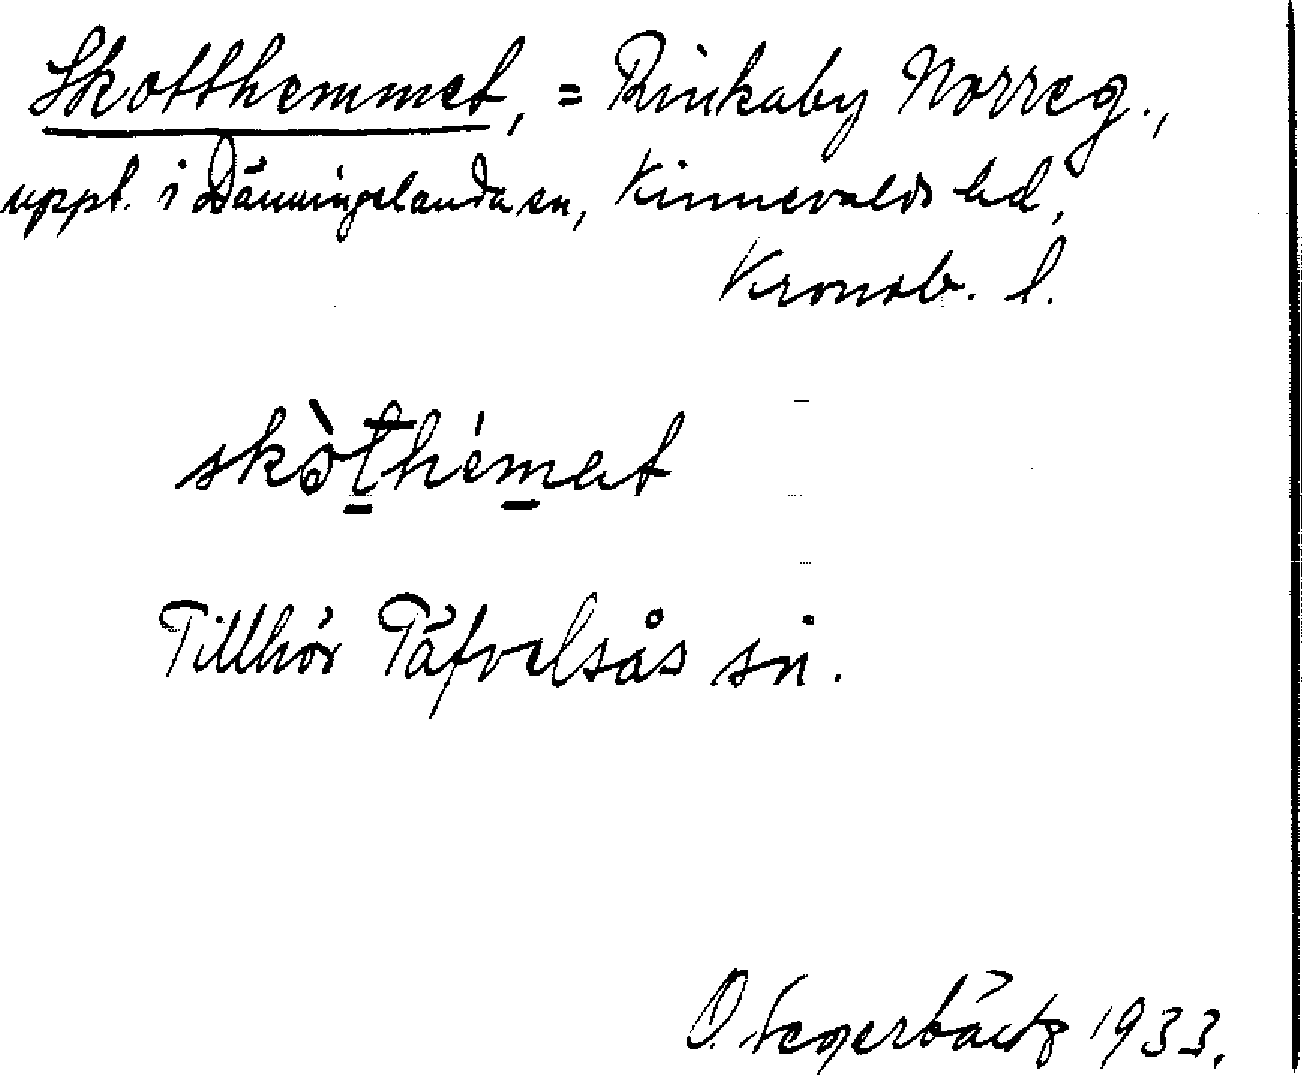 Skotthemmet, = Rinkaby Norreg.,
uppt. i Dänningelanda sn, Kinnevalds hd,
Kronob. l.
skòthémet
Tillhör Täfvelsås sn.
O. Segerbäck 1933.